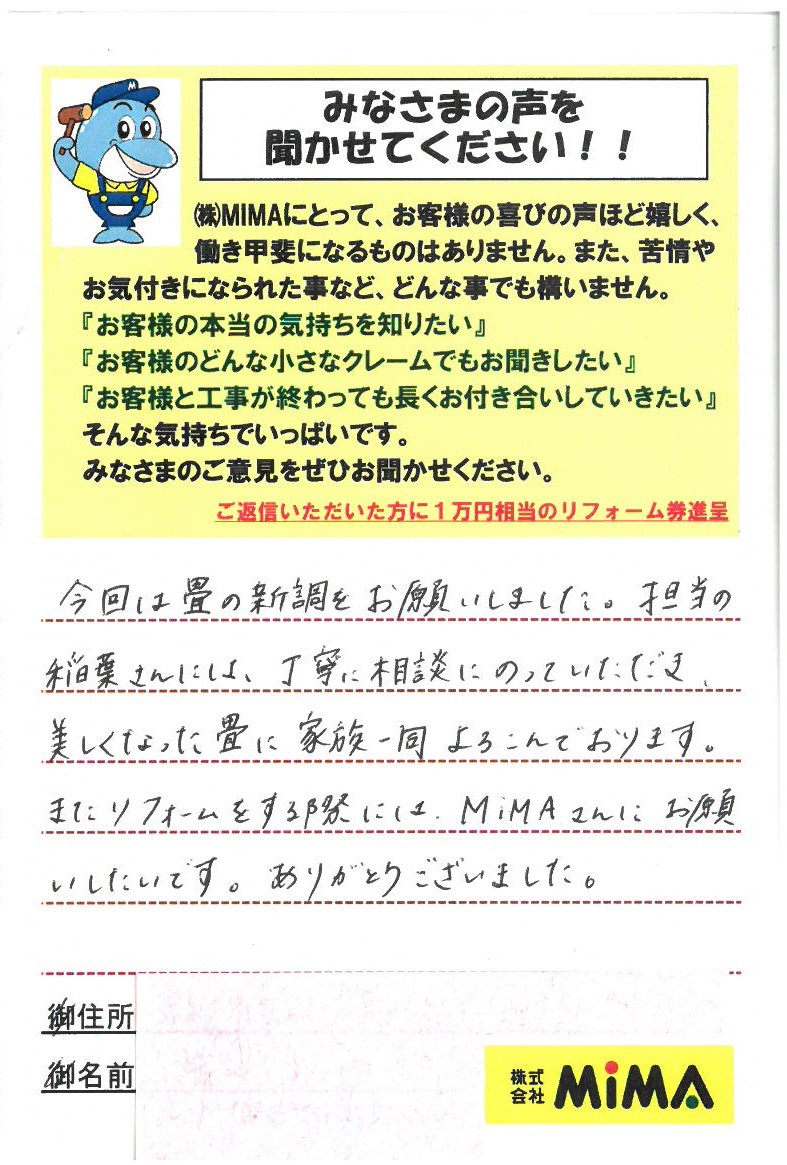 M
みなさまの声を
聞かせてください！！
㈱MIMAにとって、お客様の喜びの声ほど嬉しく、
働き甲斐になるものはありません。また、苦情や
お気付きになられた事など、どんな事でも構いません。
『お客様の本当の気持ちを知りたい』
『お客様のどんな小さなクレームでもお聞きしたい』
『お客様と工事が終わっても長くお付き合いしていきたい』
そんな気持ちでいっぱいです。
みなさまのご意見をぜひお聞かせください。
ご返信いただいた方に１万円相当のリフォーム券進呈
今回は畳の新調をお願いしました。担当の
稲葉さんには、丁寧に相談にのっていただき、
美しくなった畳に家族一同よろこんでおります。
またリフォームをする際には、MiMAさんにお願
いしたいです。ありがとうございました。
御住所
御名前
株式
会社 MiMA